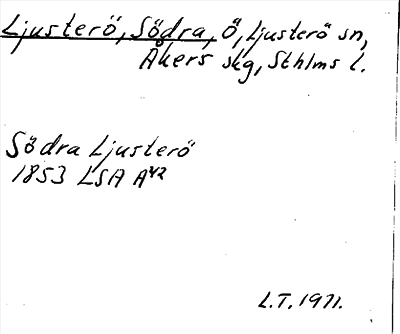 Ljusterö, Södra, Ö, Ljusterö sn,
Åkers skg, Sthlms l.
Södra Ljusterö
1853 LSA A42
L.T. 1971.